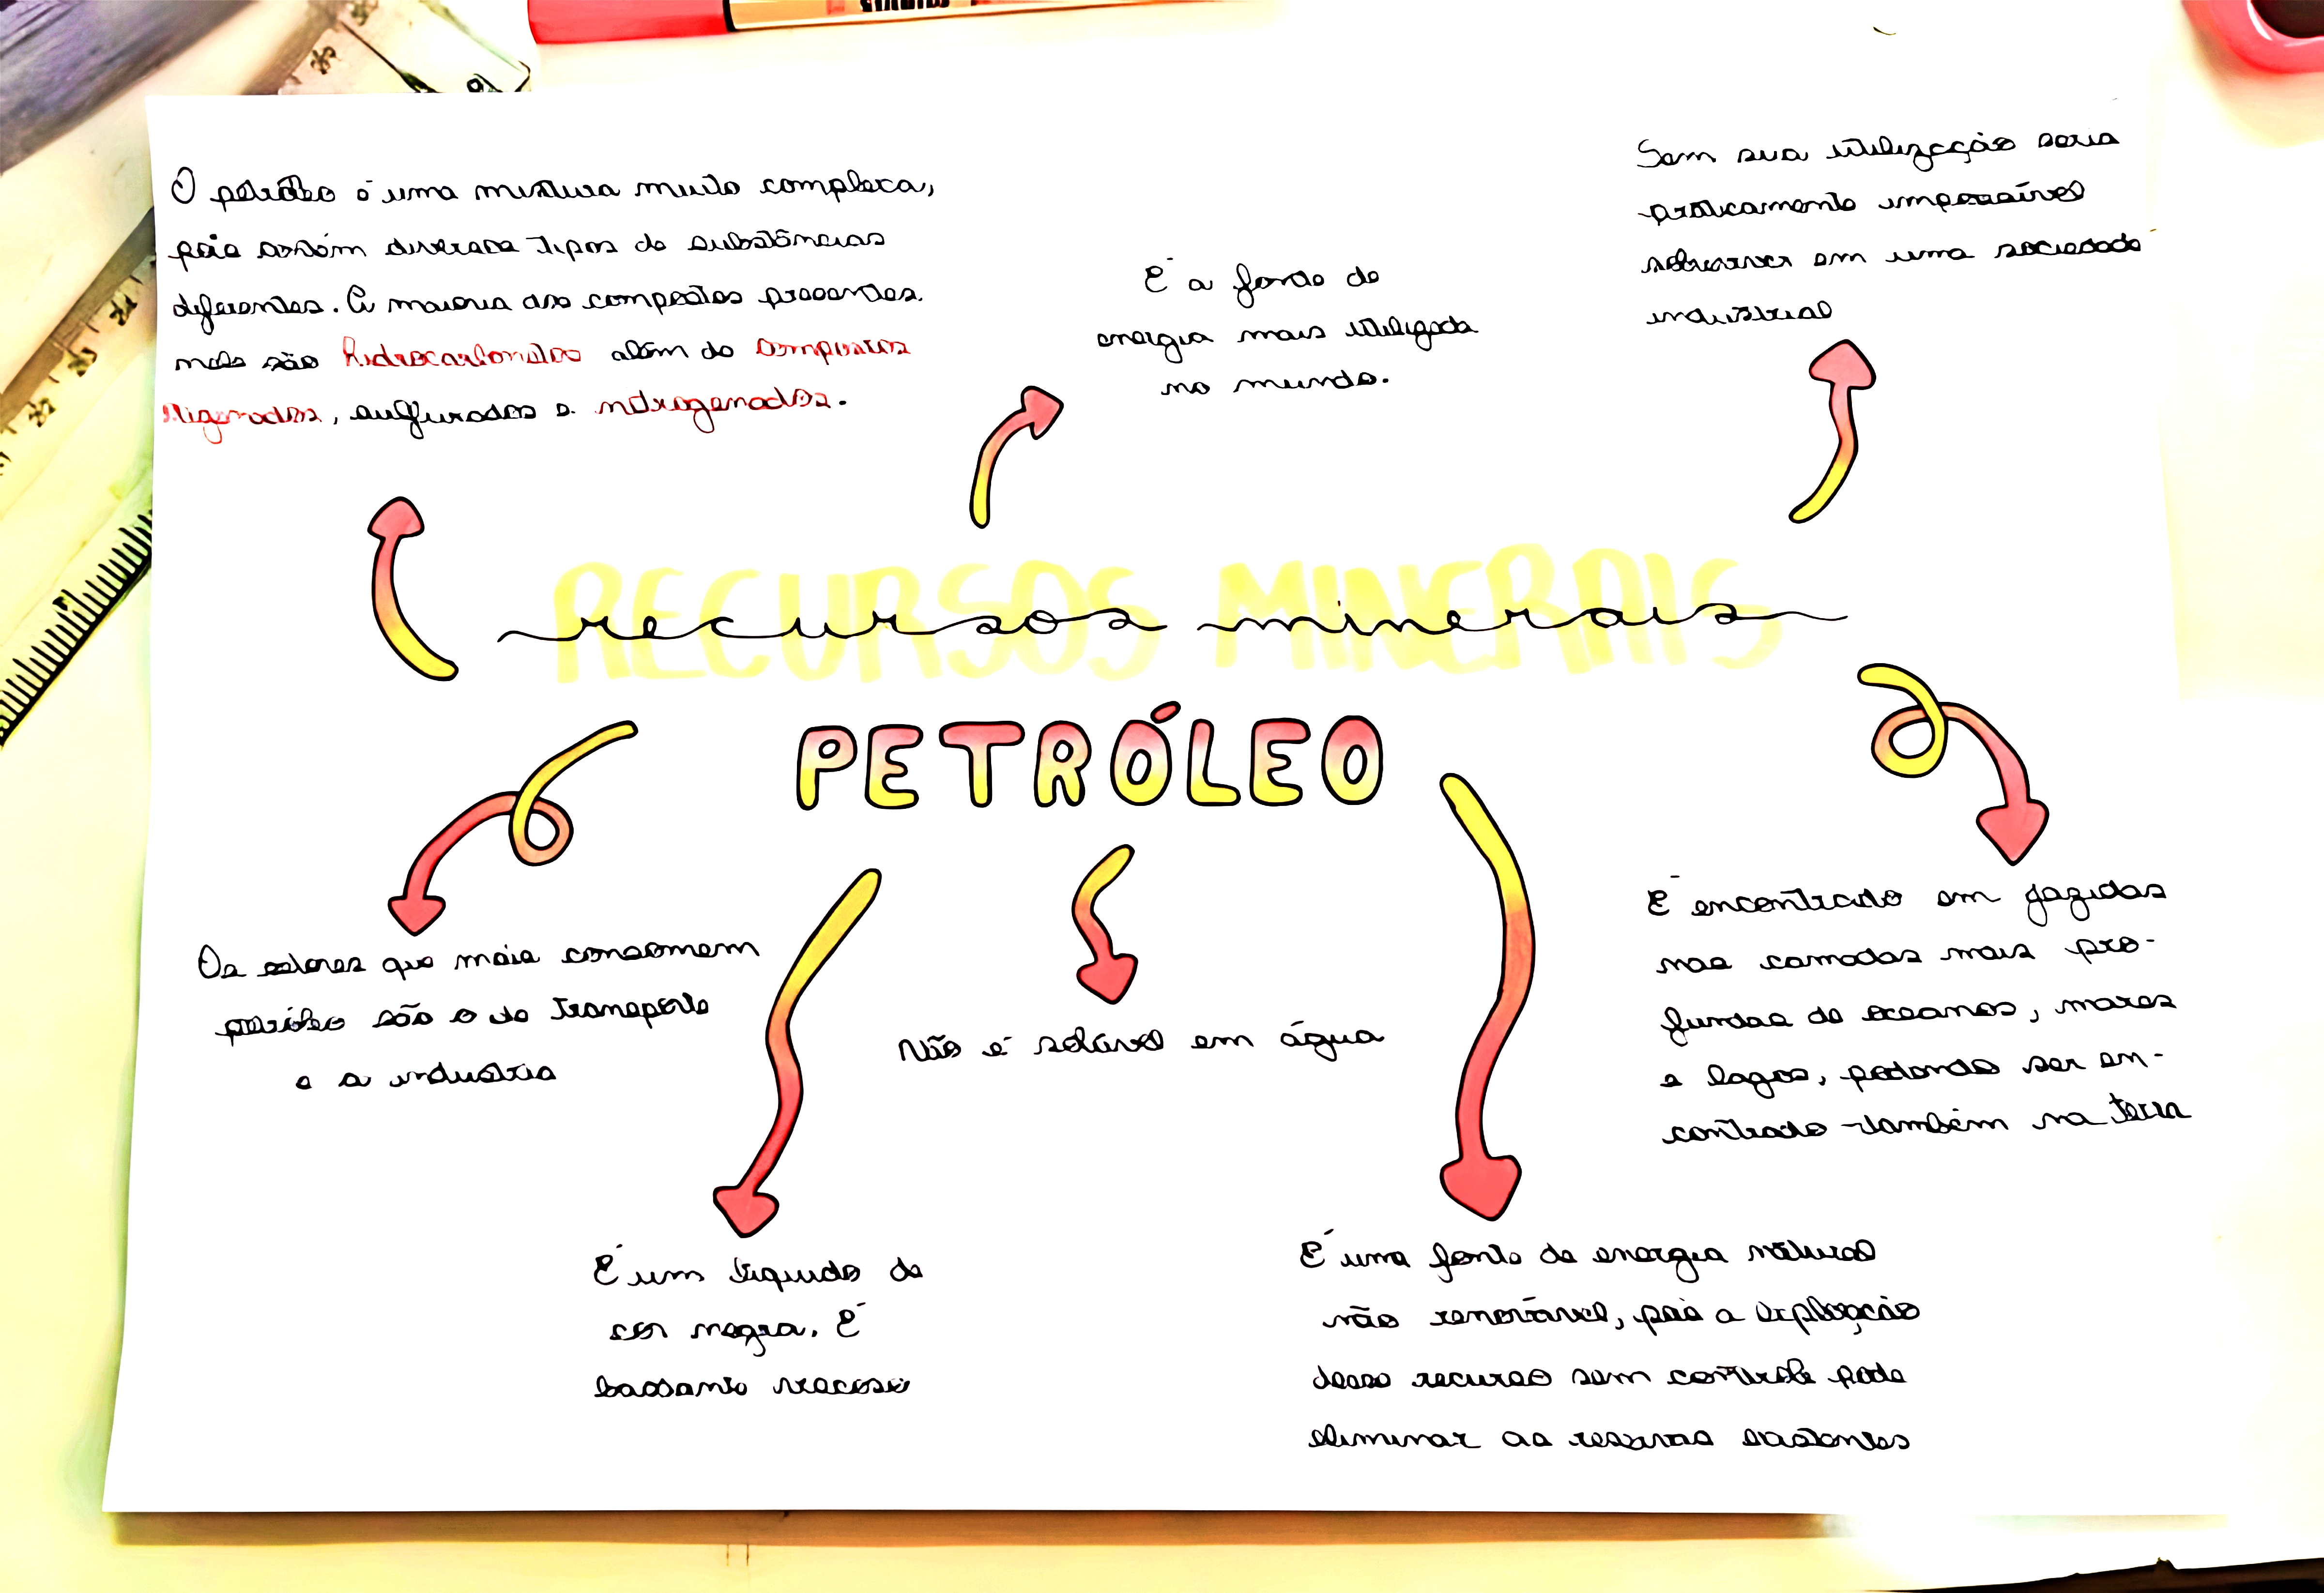 O petróleo é uma mistura muito complexa,
pois contém diversos tipos de substâncias
diferentes. A maioria dos compostos presentes
nele são hidrocarbonetos além de compostos
oxigenados, sulfurados e nitrogenados.
É a fonte de
energia mais utilizada
no mundo.
Sem sua utilização seria
praticamente impossível
sobreviver em uma sociedade
industrial
RECURSOS MINERAIS
recursos minerais
PETRÓLEO
Os setores que mais consomem
petróleo são o de transporte
e a industria
É um líquido de
cor negra. É
bastante viscoso
Não é solúvel em água
É uma fonte de energia natural
não renovável, pois a exploração
desse recurso sem controle pode
eliminar as reservas existentes
É encontrado em jazidas
nas camadas mais pro-
fundas de oceanos, mares
e lagos, podendo ser en-
contrado também na terra